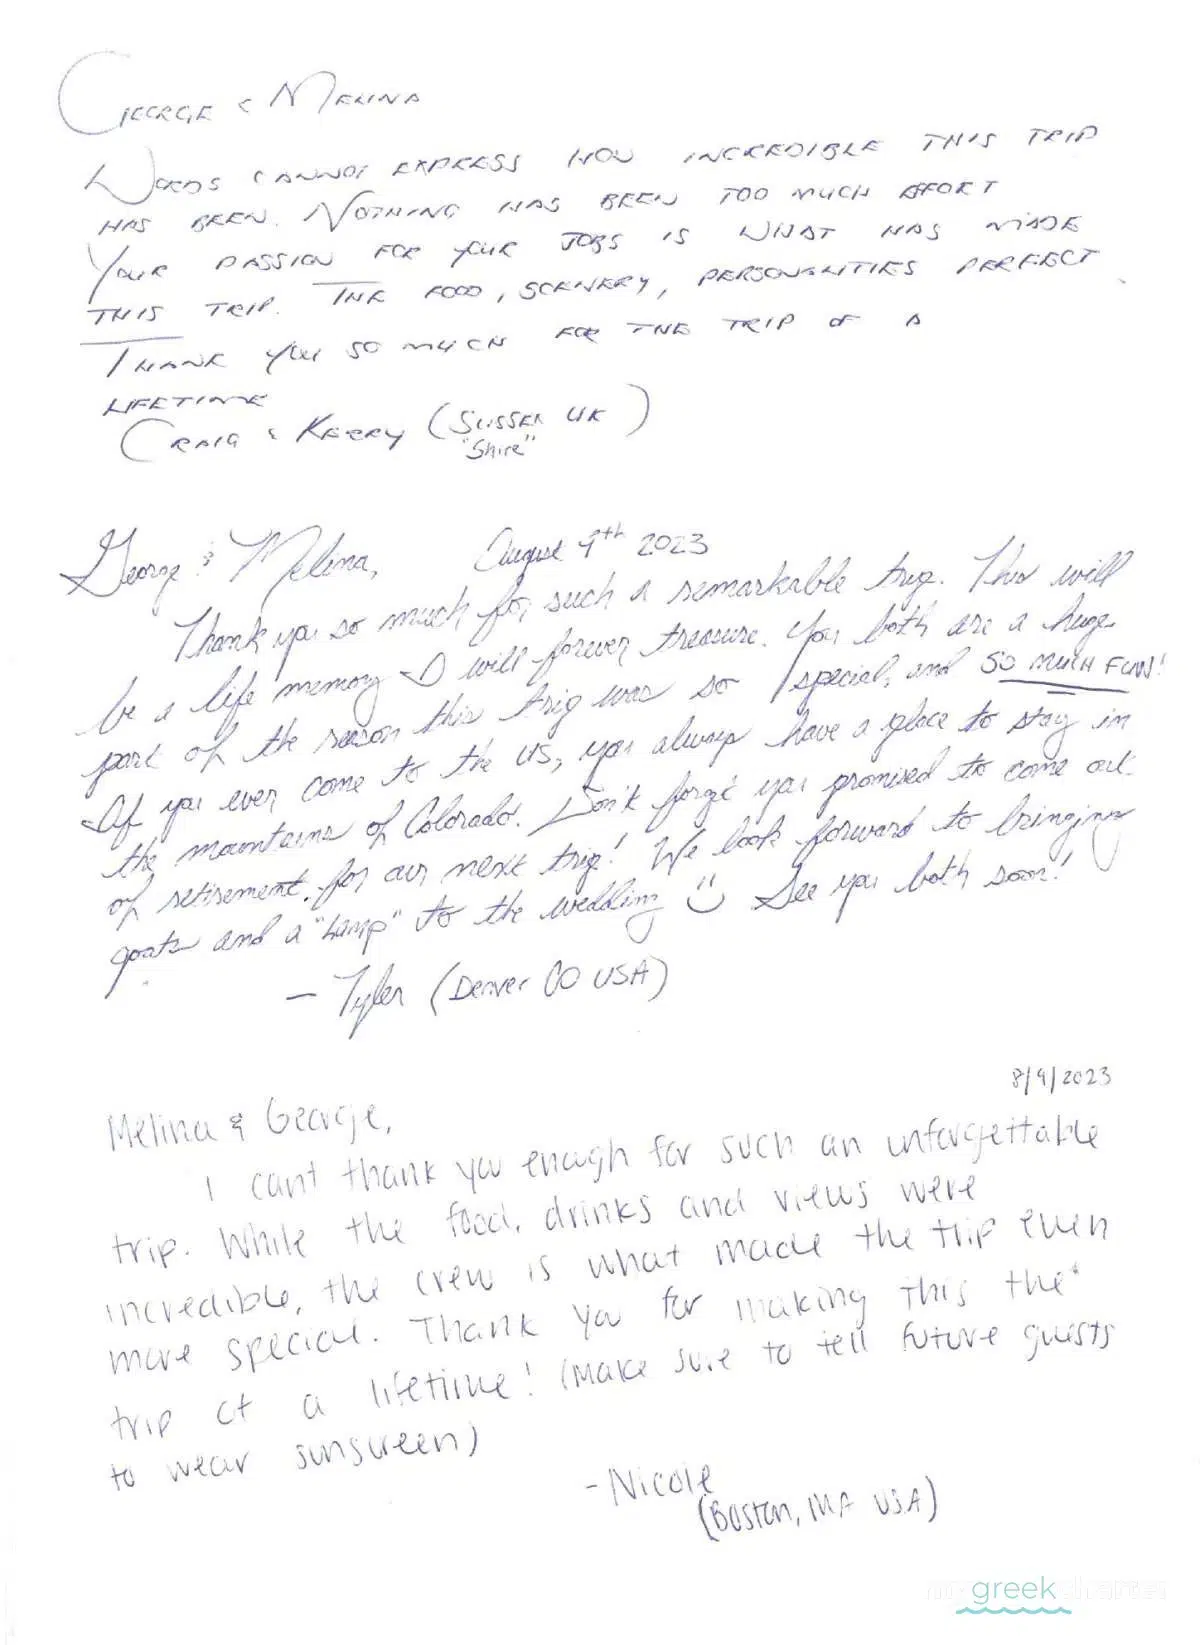 GEORGE & MELINA
WORDS CANNOT EXPRESS HOW INCREDIBLE THIS TRIP
HAS BEEN. NOTHING HAS BEEN TOO MUCH EFORT
YOUR PASSION FOR YOUR JOBS IS WHAT HAS MADE
THIS TRIP. THE FOOD, SCENERY, PERSONALITIES PERFECT
THANK YOU SO MUCH FOR THE TRIP OF A
LIFETIME
CRAIG & KERRY (SUSSEX UK)
"Shire"
George & Melina, August 9th 2023
Thank you so much for such a remarkable trip. This will
be a life memory I will forever treasure. You both are a huge
part of the reason this trip was so special, and SO MUCH FUN!
If you ever come to the US, you always have a place to stay in
the mountains of Colorado. Don't forget you promised to come out
of retirement for our next trip! We look forward to bringing
goats and a "Lamp" to the wedding :) See you both soon!
- Tyler (Denver CO USA)
8/9/2023
Melina & George,
I cant thank you enough for such an unforgettable
trip. While the food, drinks and views were
incredible, the crew is what made the trip even
more special. Thank you for making this the
trip of a lifetime! (Make sure to tell future guests
to wear sunscreen)
- Nicole
(Boston, MA USA)
my greek charter